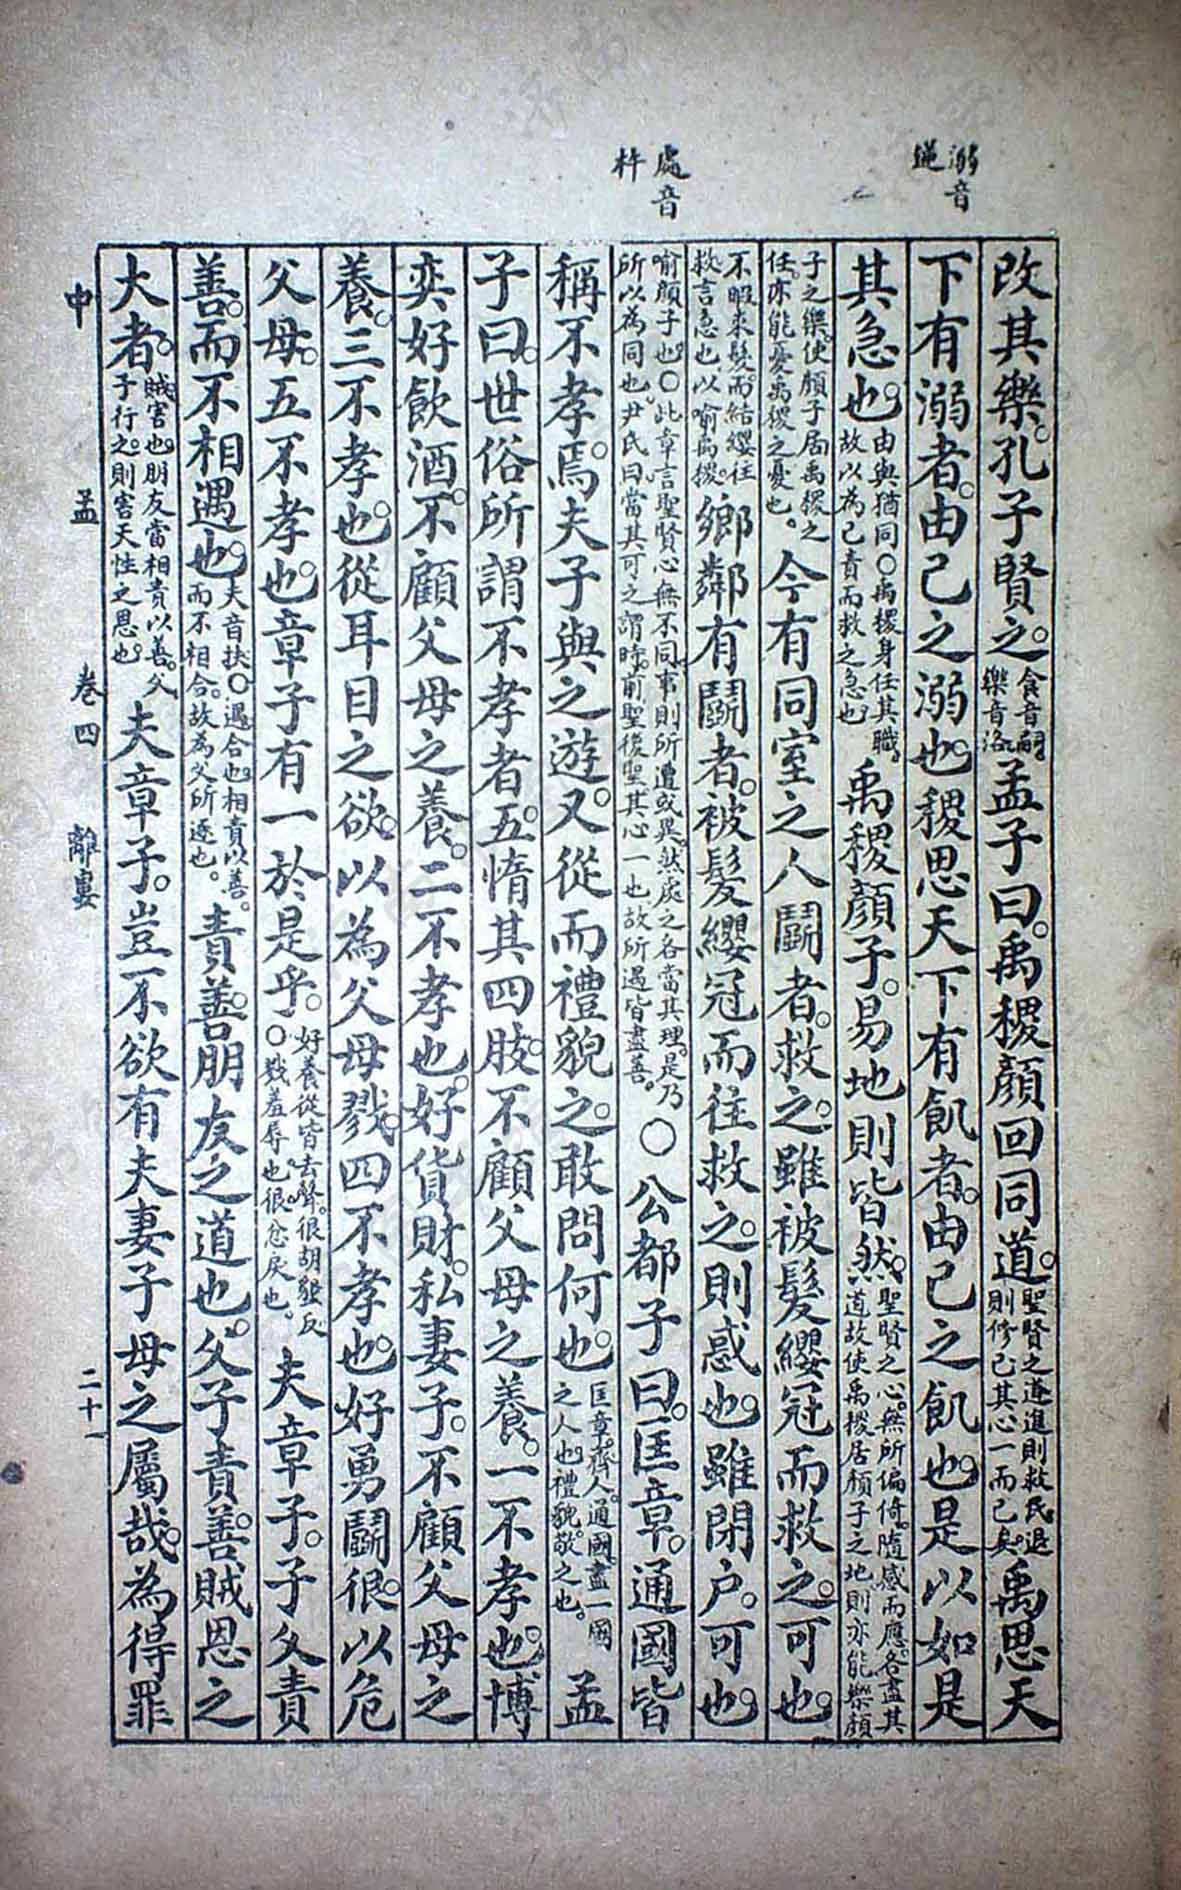 溺音
處音
杵
改其樂。孔子賢之。食音嗣。樂音洛。孟子曰。禹稷顏回同道。聖賢之道。進則救民。退則修己。其心一而已矣。禹思天
下有溺者。由己之溺也。稷思天下有飢者。由己之飢也。是以如是
其急也。由與猶同〇禹稷身任其職。故以為己責而救之急也。禹稷顏子。易地則皆然。聖賢之心。無所偏倚。隨感而應。各盡其道。故使禹稷居顏子之地。則亦能樂顏
子之樂。使顏子居禹稷之任。亦能憂禹稷之憂也。今有同室之人鬬者。救之。雖被髮纓冠而救之。可也。
不暇束髮。而結纓往救。言急也。以喻禹稷。鄉鄰有鬬者。被髮纓冠而往救之。則惑也。雖閉户。可也。
喻顏子也〇此章言聖賢心無不同。事則所遭或異。然處之各當其理。是乃所以為同也。尹氏曰。當其可之謂時。前聖後聖。其心一也。故所遇皆盡善。〇公都子曰。匡章。通國皆
稱不孝焉。夫子與之遊。又從而禮貌之。敢問何也。匡章。齊人。通國。盡一國之人也。禮貌。敬之也。孟
子曰。世俗所謂不孝者五。惰其四肢。不顧父母之養。一不孝也。博
奕好飲酒。不顧父母之養。二不孝也。好貨財。私妻子。不顧父母之
養。三不孝也。從耳目之欲。以為父母戮。四不孝也。好勇鬬很。以危
父母。五不孝也。章子有一於是乎。好養從皆去聲。很胡懇反〇戮羞辱也。很忿戾也。夫章子。子父責
善。而不相遇也。夫音扶〇遇合也。相責以善。而不相合。故為父所逐也。責善。朋友之道也。父子責善。賊恩之
大者。賊害也。朋友當相責以善。父子行之。則害天性之恩也。夫章子。豈不欲有夫妻子母之屬哉。為得罪
中 孟 卷四 離婁 二十一